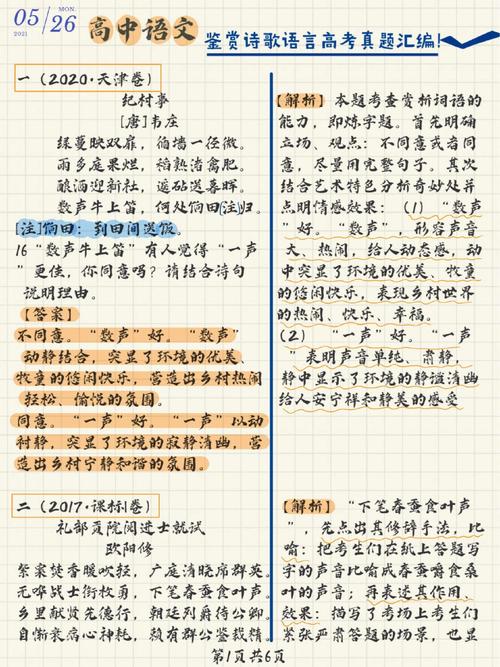 05/26
MON.
2021
高中语文
鉴赏诗歌语言高考真题汇编!
一(2020·天津卷)
纪村事
[唐]韦庄
绿蔓映双扉,循墙一径微。
雨多庭果烂,稻熟渚禽肥。
酿酒迎新社,遥砧送暮晖。
数声牛上笛,何处饷田[注]归。
[注]饷田:到田间送饭。
16"数声牛上笛"有人觉得"一声
"更佳,你同意吗?请结合诗句
说明理由。
【答案】
不同意。"数声"好。"数声"
动静结合,突显了环境的优美、
牧童的悠闲快乐,营造出乡村热闹
轻松、愉悦的氛围。
同意。"一声"好。"一声"以动
衬静,突显了环境的寂静清幽,营
造出乡村宁静和谐的氛围。
二(2017·课标Ⅰ卷)
礼部贡院阅进士就试
欧阳修
紫案焚香暖吹轻,广庭清晓席群英。
无哗战士衔枚勇,下笔春蚕食叶声。
乡里献贤先德行,朝廷列爵待公卿。
自惭衰病心神耗,赖有群公鉴裁精。
【解析】本题考查赏析词语的
能力,即炼字题。首先明确
立场、观点:不同意或者同
意,尽量用完整句子。其次
结合艺术特色分析奇妙处并
点明情感效果:(1)"数声
"好。"数声",形容声音
大、热闹,给人动态感,动
中突显了环境的优美、牧童
的悠闲快乐,表现乡村世界
的热闹、快乐、幸福。
(2)"一声"好。"一声
"表明声音单纯、肃静,
静中显示了环境的静谧清幽
给人安宁祥和静美的感受
【解析】"下笔春蚕食叶声
",先点出其修辞手法,比
喻:把考生们在纸上答题写
字的声音比喻成春蚕嚼食桑
叶的声音;再表述其作用、
效果:描写了考场上考生们
紧张严肃答题的场景,也显
第1页共6页